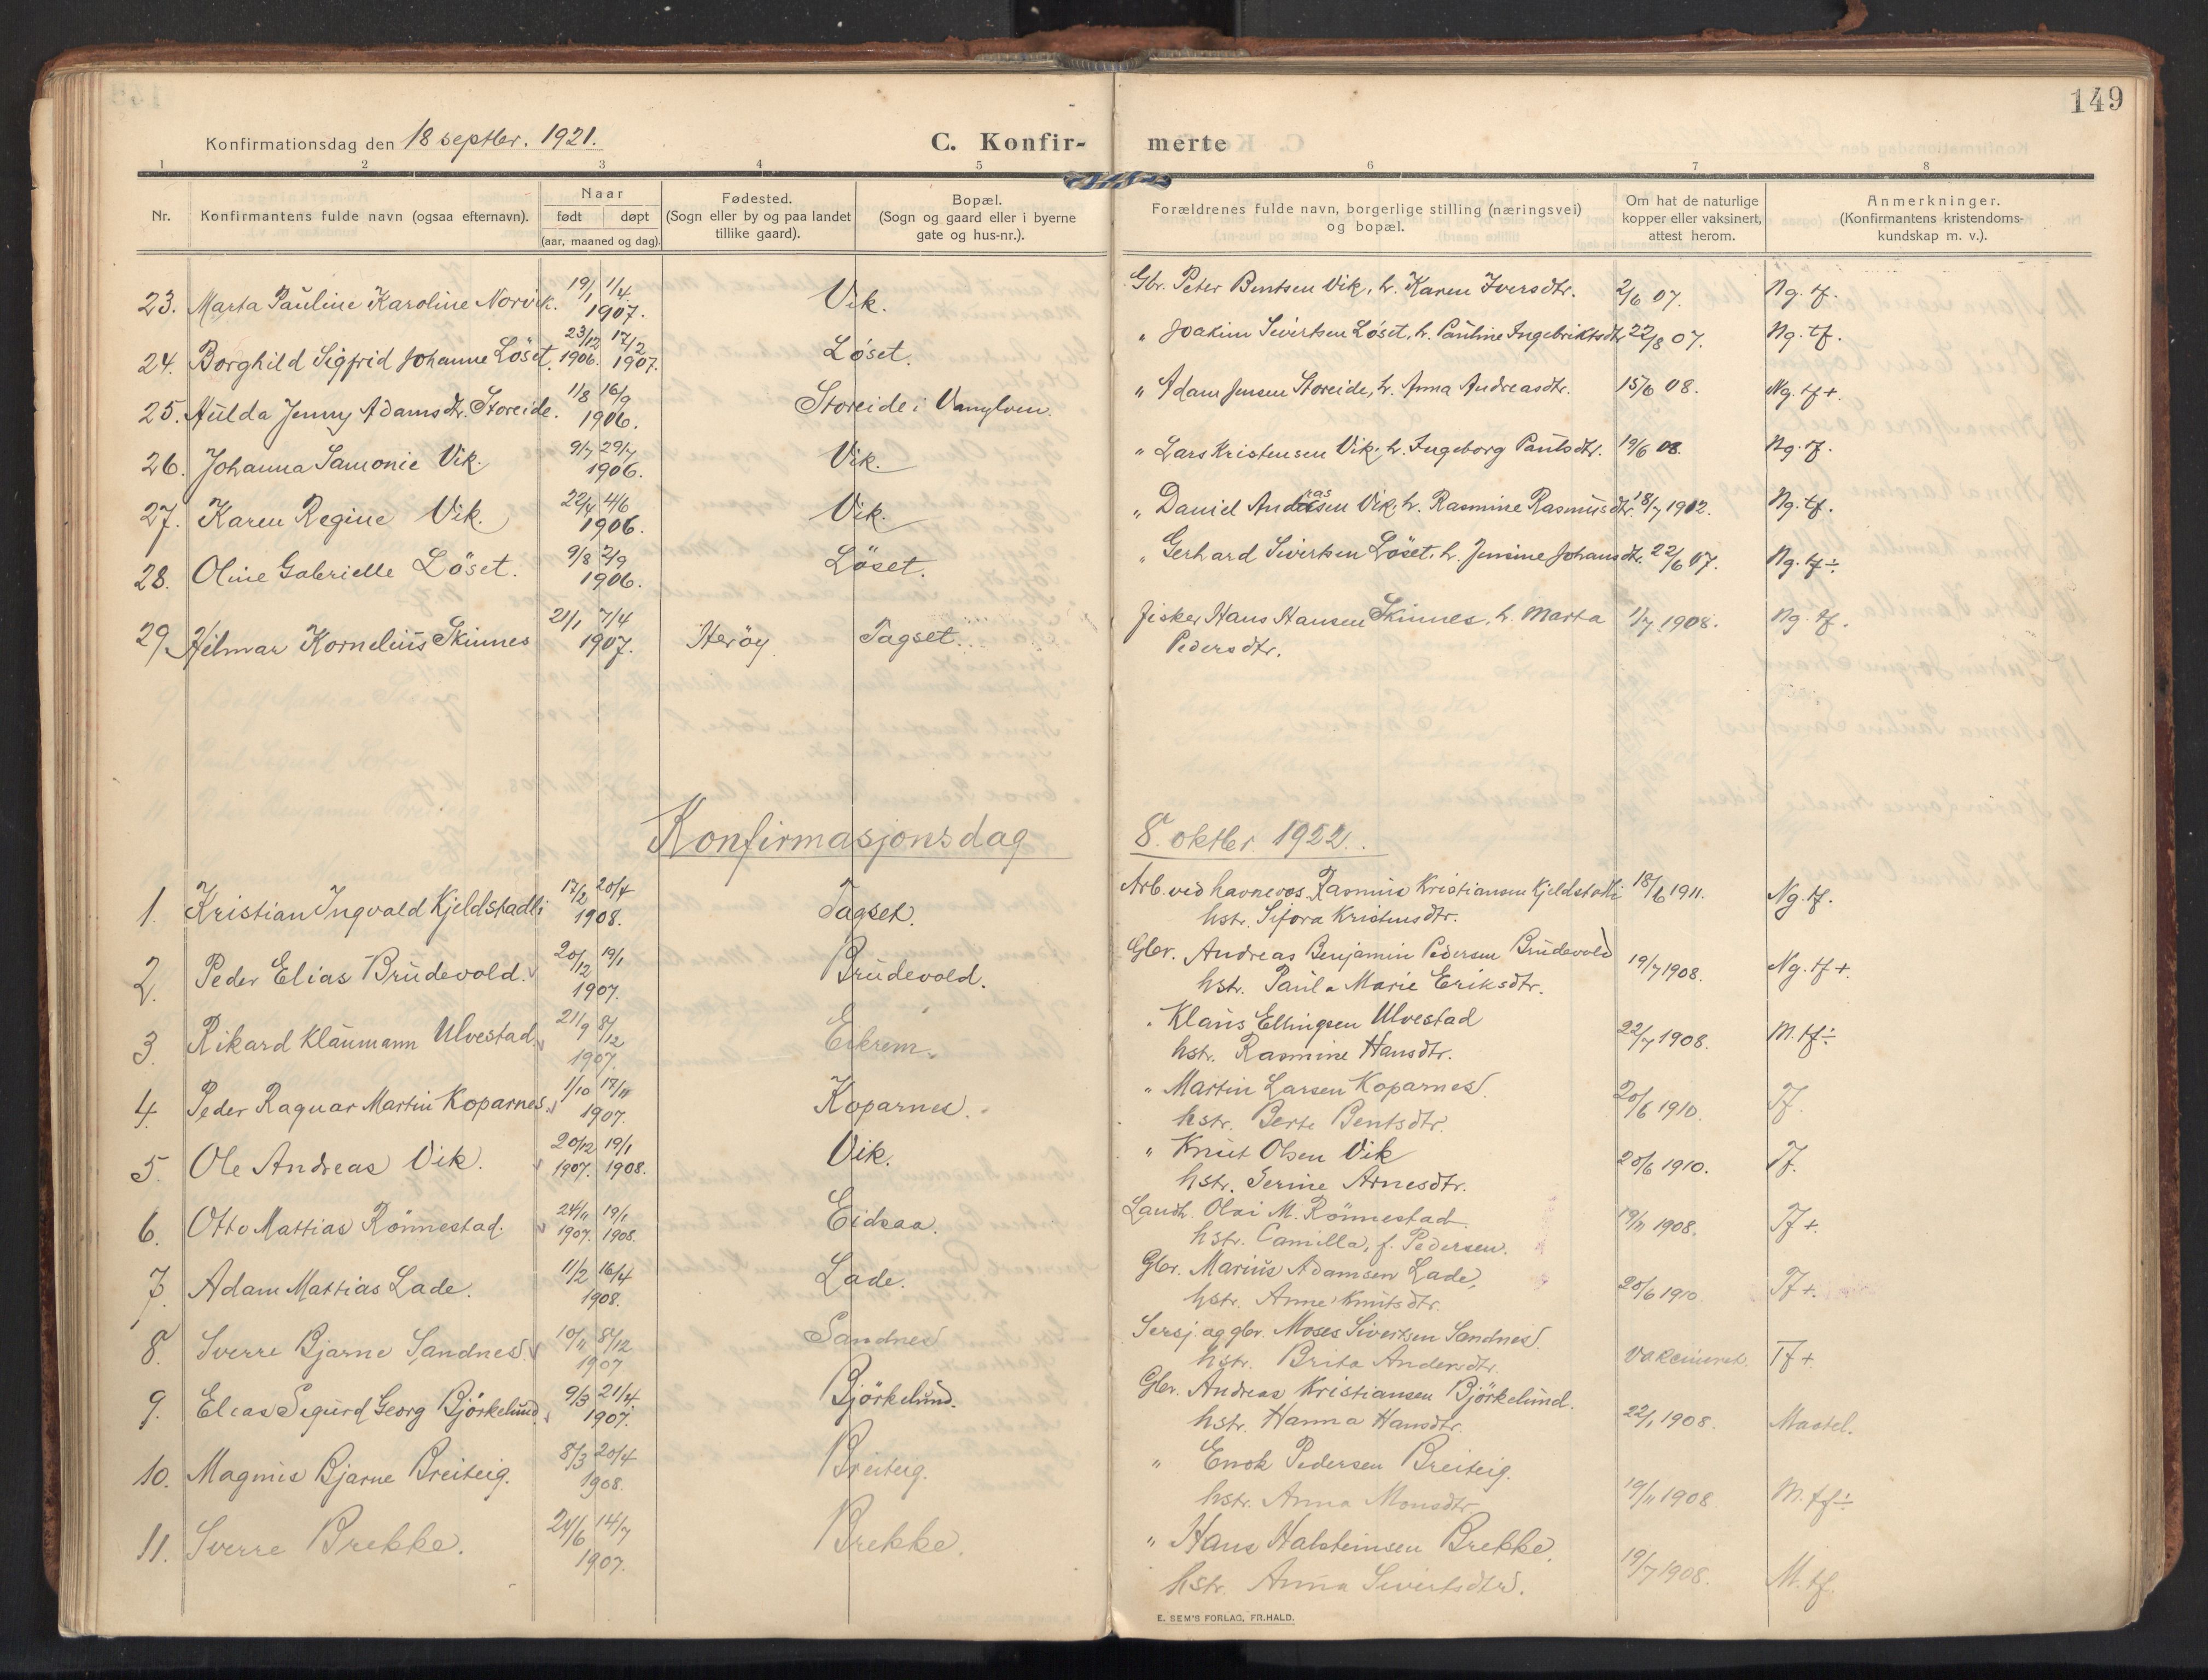 149
Konfirmationsdag den 18 septbr. 1921.
C. Konfir- merte
1 2 3 4 5 6 7 8
Nr.
Konfirmantens fulde navn (ogsaa efternavn).
Naar
født døpt
(aar, maaned og dag).
Fødested.
(Sogn eller by og paa landet
tillike gaard).
Bopæl.
(Sogn og gaard eller i byerne
gate og hus-nr.).
Forældrenes fulde navn, borgerlige stilling (næringsvei)
og bopæl.
Om hat de naturlige
kopper eller vaksinert,
attest herom.
Anmerkninger.
(Konfirmantens kristendoms-
kundskap m. v.).
23. Marta Pauline Karoline Norvik. 19/1 1/4 1907. Vik. Gbr. Peter Bentsen Vik, h. Karen Iversdtr. 2/6 07. Ng. tf.
24. Borghild Sigfrid Johanne Löset. 23/12 1906. 17/2 1907. Löset. " Joakim Sivertsen Löset, h. Pauline Ingebriktsdtr. 22/8 07. Ng. tf.
25. Hulda Jenny Adamsdtr. Storeide. 11/8 16/9 1906. Storeide i Vanylven. " Adam Jensen Storeide, h. Anna Andreasdtr. 15/6 08. Ng. tf+.
26. Johanna Samonie Vik. 9/7 29/7 1906. Vik. " Lars Kristensen Vik, h. Ingeborg Paulsdtr. 19/6 08. Ng. tf.
27. Karen Regine Vik. 22/4 4/6 1906. Vik. " Daniel Andreassen Vik, h. Rasmine Rasmusdtr. 18/7 1912. Ng. tf.
28. Oline Gabrielle Löset. 9/8 2/9 1906. Löset. " Gerhard Sivertsen Löset, h. Jensine Johansdtr. 22/6 07. Ng. tf÷
29. Hilmar Kornelius Skinnes 21/1 7/4 1907. Herøy Tagset. Fisker Hans Hansen Skinnes, h. Marta 1/7 1908. Ng. tf.
Pedersdtr.
Konfirmasjonsdag 8. oktbr. 1922.
1. Kristian Ingvald Kjeldstadli 17/2 20/4 1908. Tagset. Arb. ved havnevæs. Rasmus Kristiansen Kjeldstadli 18/6 1911. Ng. tf.
hstr. Sefora Kristensdtr.
2. Peder Elias Brudevold. 20/12 19/1 1907. Brudevold. Gbr. Andreas Benjamin Pedersen Brudevold 19/7 1908. Ng. tf+.
hstr. Paula Marie Eriksdtr.
3. Rikard Klaumann Ulvestad. 21/9 8/12 1907. Eikrem. " Klaus Ellingsen Ulvestad 22/7 1908. M. tf÷
hstr. Rasmine Hansdtr.
4. Peder Ragnar Martin Koparnes. 1/10 17/11 1907. Koparnes. " Martin Larsen Koparnes. 20/6 1910. Tf.
hstr. Berte Bentsdtr.
5. Ole Andreas Vik. 20/12 1907. 19/1 1908. Vik. " Knut Olsen Vik 20/6 1910. Tf.
hstr. Serine Arnesdtr.
6. Otto Mattias Rönnestad. 24/11 1907. 19/1 1908. Eidsaa. Landh. Olai M. Rönnestad 19/11 1908. Tf+
hstr. Camilla, f. Pedersen.
7. Adam Mattias Lade. 11/2 16/4 1908. Lade. Gbr. Marius Adamsen Lade, 20/6 1910 Tf+.
hstr. Anne Knutsdtr.
8. Sverre Bjarne Sandnes. 10/11 8/12 1907 Sandnes Sersj. og gbr. Moses Sivertsen Sandnes. Vakcineret. Tf+.
hstr. Brita Andersdtr.
9. Elias Sigurd Georg Björkelund. 9/3 21/4 1907. Björkelund. Gbr. Andreas Kristiansen Björkelund. 22/1 1908. Maatel.
hstr. Hanna Hansdtr.
10. Magnus Bjarne Breiteig. 8/3 20/4 1908. Breiteig. " Enok Pedersen Breiteig. 19/11 1908 M. tf÷
hstr. Anna Monsdtr.
11. Sverre Brekke. 24/6 14/7 1907. Brekke. " Hans Halsteinsen Brekke. 19/7 1908. M. tf.
hstr. Anna Sivertsdtr.
E. SEM'S FORLAG, FR.HALD.